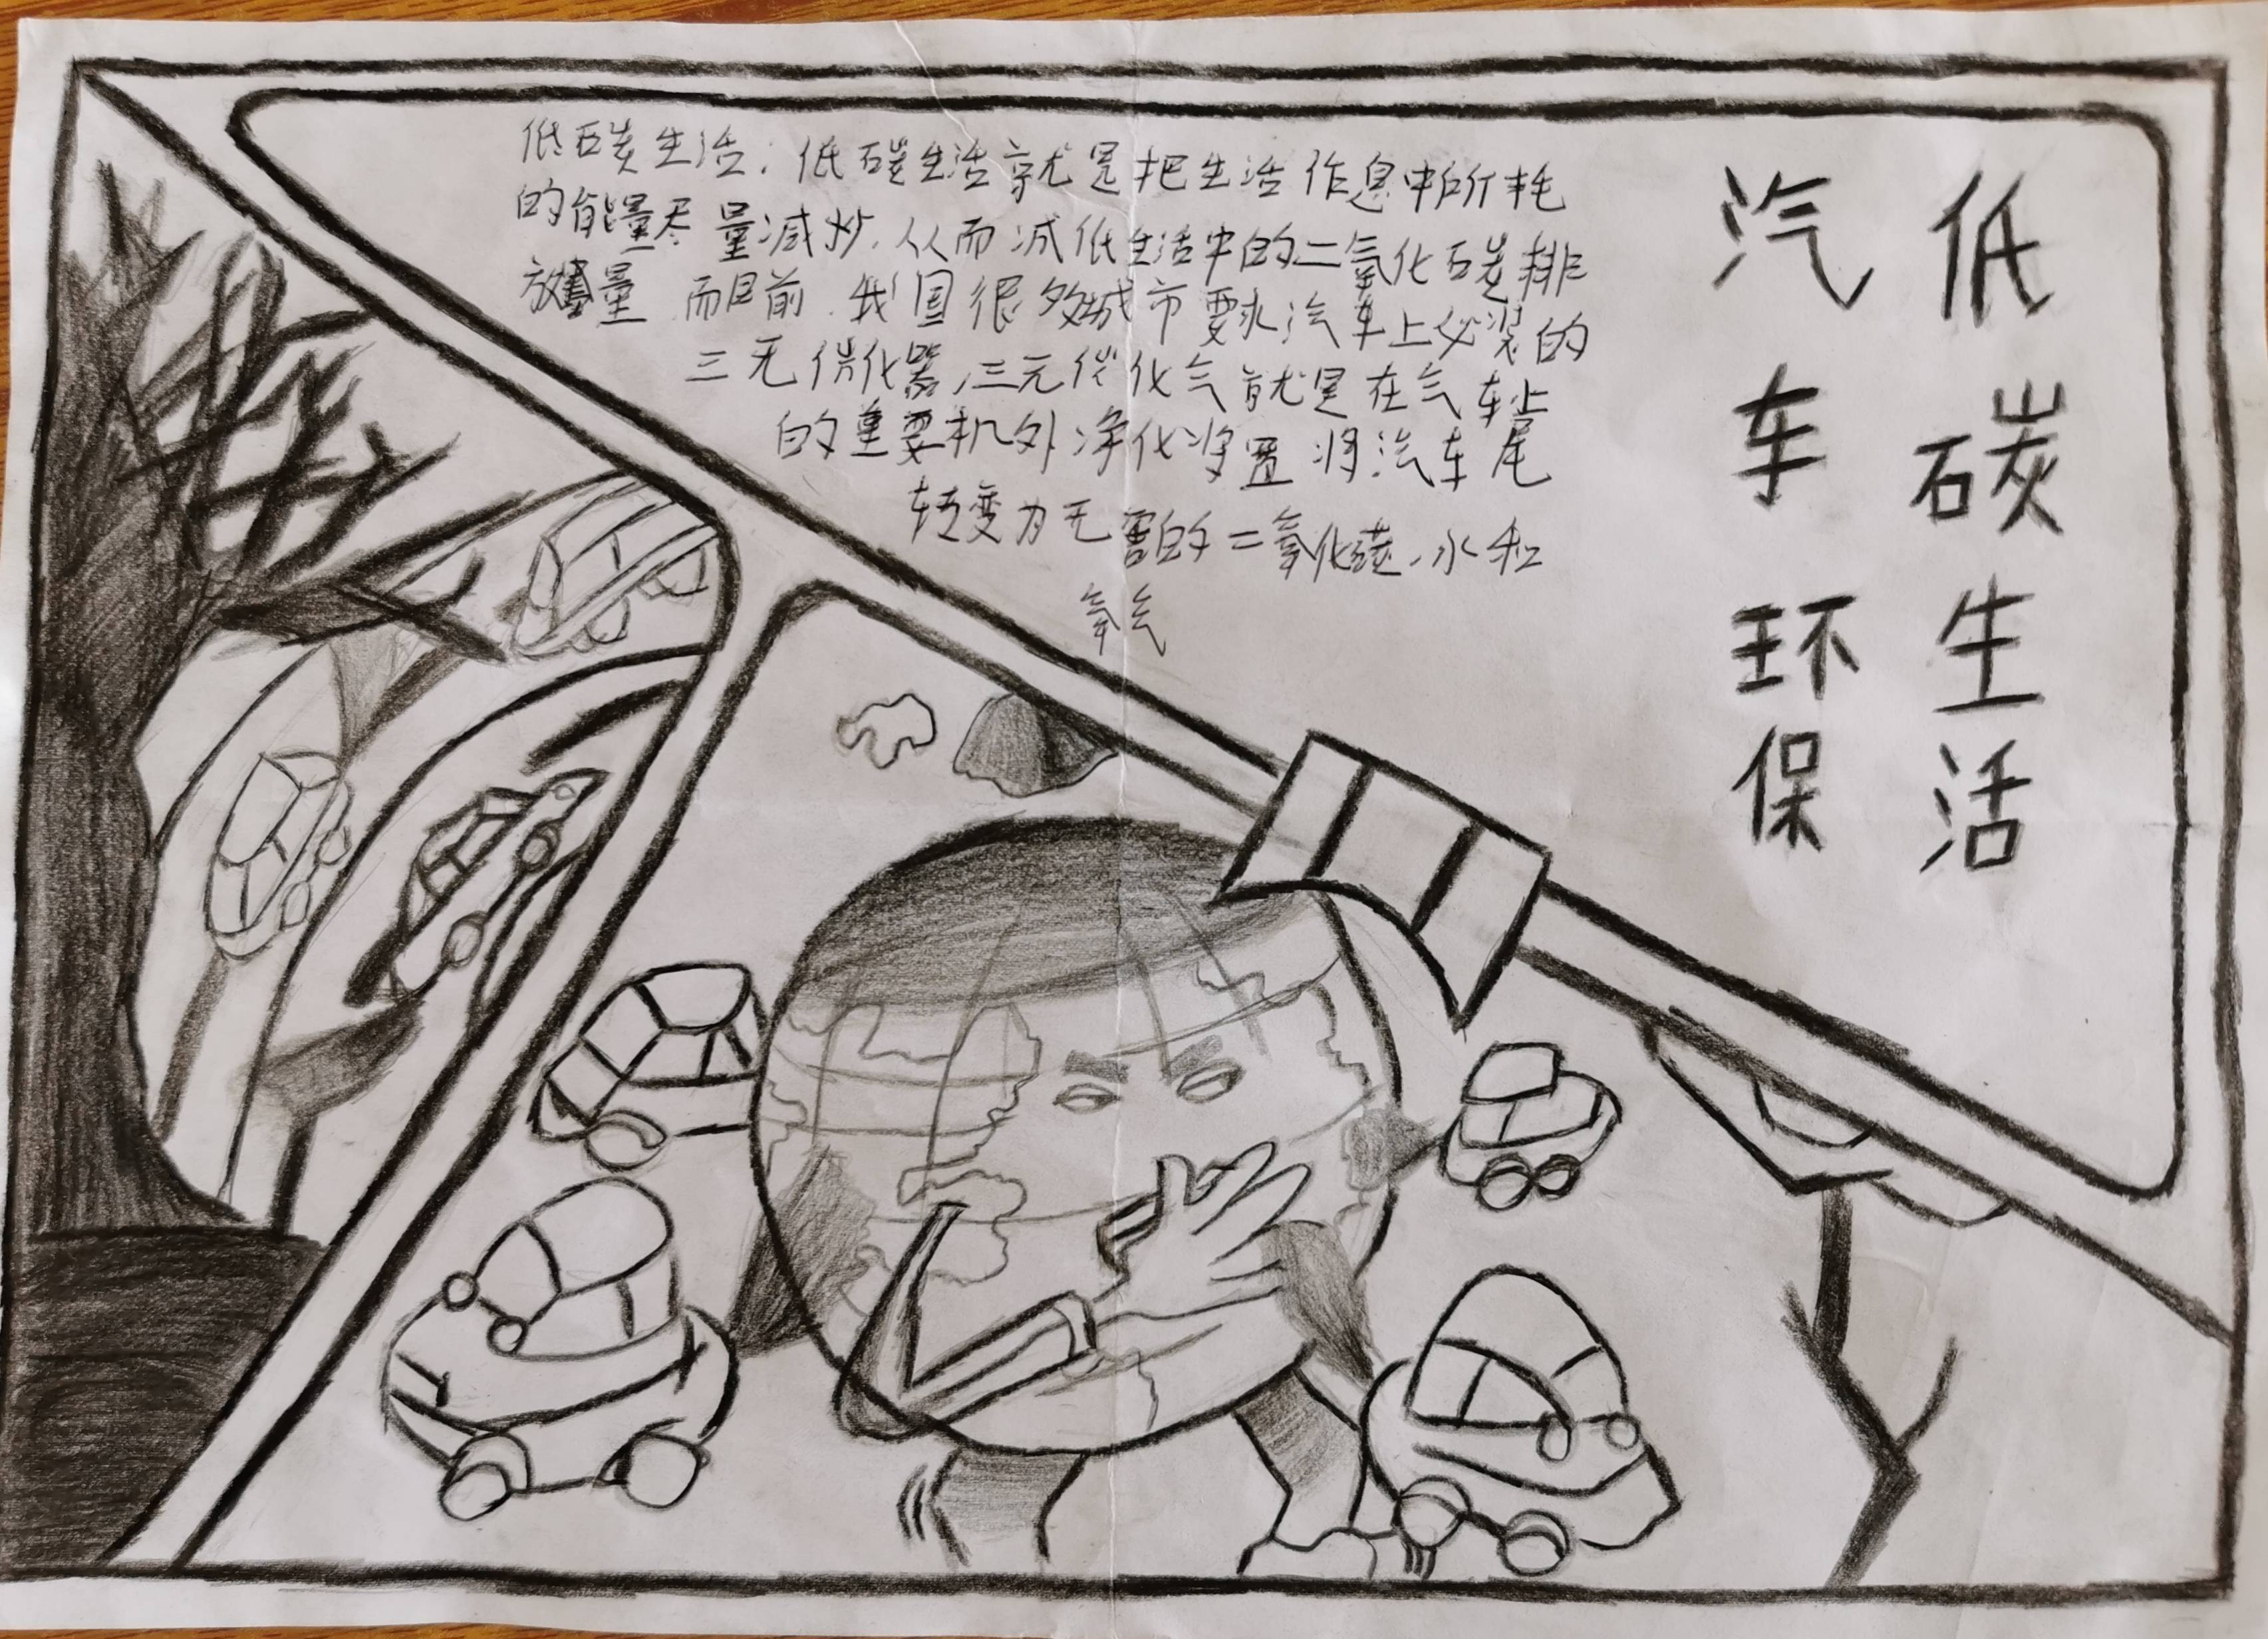 低碳生活
汽车环保
低碳生活：低碳生活就是把生活作息中所耗
的能量尽量减炒，从而减低生活中的二氧化碳排
放量 而目前，我国很多城市要求汽车上必装的
三无催化器，三元催化气就是在气车上
的重要机外净化将置 将汽车尾
转变为无害的二氧化碳、水和
氧气